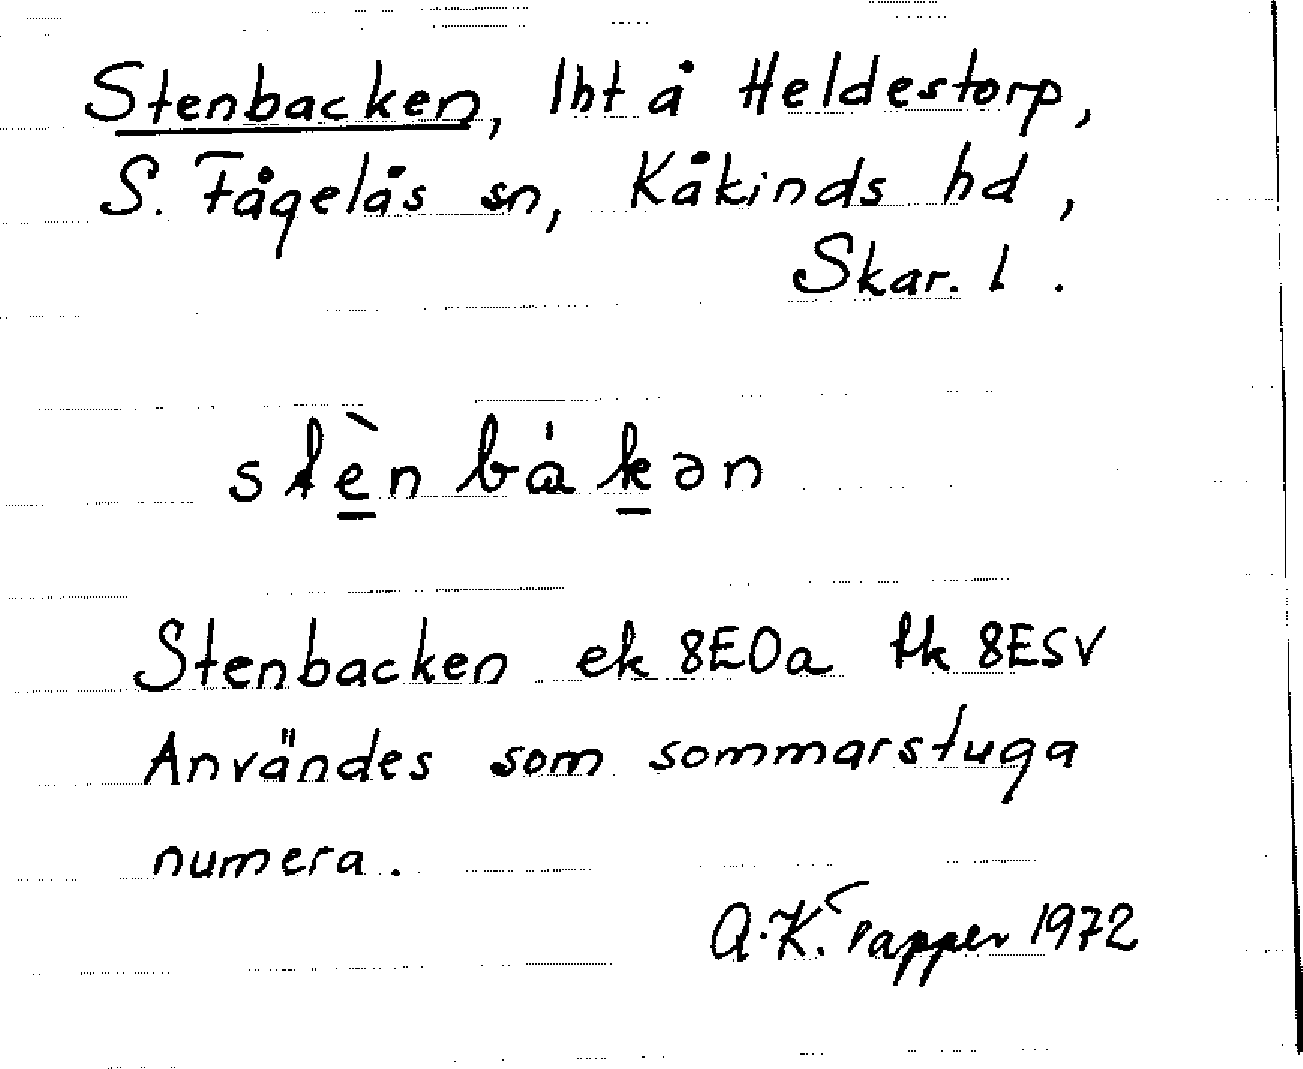 Stenbacken, lht å Heldestorp,
S. Fågelås sn, Kåkinds hd,
Skar. l.
stèn bákən
Stenbacken ek 8E0a tk 8E5V
Användes som sommarstuga
numera.
A.K. Tapper 1972